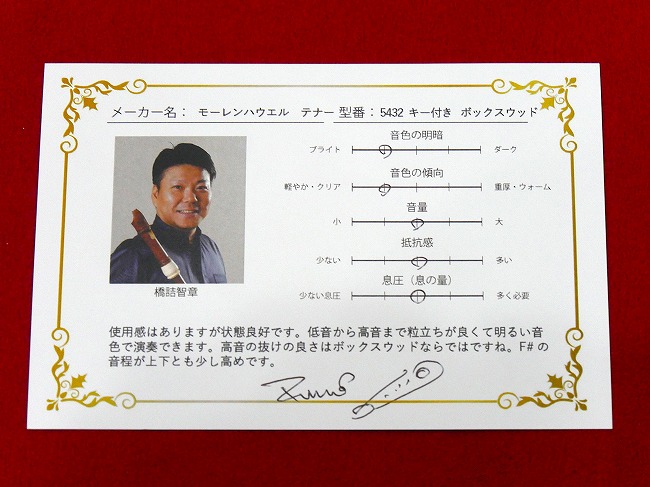 メーカー名： モーレンハウエル テナー 型番：5432 キー付き ボックスウッド
音色の明暗
ブライト ダーク
音色の傾向
軽やか・クリア 重厚・ウォーム
音量
小 大
抵抗感
少ない 多い
息圧（息の量）
少ない息圧 多く必要
橋詰智章
使用感はありますが状態良好です。低音から高音まで粒立ちが良くて明るい音
色で演奏できます。高音の抜けの良さはボックスウッドならではですね。F# の
音程が上下とも少し高めです。